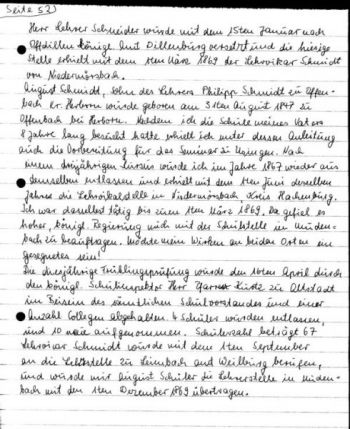 Seite 52)
Herr Lehrer Schneider wurde mit dem 15ten Januar nach
Offdillen königl. Amt Dillenburg versetzt und die hiesige
Stelle erhielt mit dem 1ten März 1869 der Lehrvikar Schmidt
von Niedermörsbach.
August Schmidt, Sohn des Lehrers Philipp Schmidt zu Offen-
bach b. Herborn wurde geboren am 3ten August 1847 zu
Offenbach bei Herborn. Nachdem ich die Schule meines Vaters
8 Jahre lang besucht hatte erhielt ich unter dessen Anleitung
auch die Vorbereitung für das Seminar zu Usingen. Nach
einem dreijährigen Cursus wurde ich im Jahre 1867 wieder aus
demselben entlassen und erhielt mit dem 1ten Juni desselben
Jahres die Lehrvikarstelle in Niedermörsbach, Kreis Hachenburg.
Ich war daselbst tätig bis zum 1ten März 1869. Da gefiel es
hoher, königl. Regierung mich mit der Schulstelle in Münden-
bach zu beauftragen. Möchte mein Wirken an beiden Orten ein
gesegnetes sein!
Die diesjährige Frühlingsprüfung wurde den 16ten April durch
den königl. Schulinspektor Herr Pfarrer Kürtz zu Altstadt
im Beisein des sämtlichen Schulvorstandes und einer
Anzahl Collegen abgehalten. 4 Schüler wurden entlassen,
und 10 neu aufgenommen. Schülerzahl beträgt 67
Lehrvikar Schmidt wurde mit dem 1ten September
an die Lehrstelle zu Leimbach amt Weilburg berufen,
und wurde mir August Schüler die Lehrerstelle in Münden-
bach mit dem 1ten Dezember 1869 übertragen.